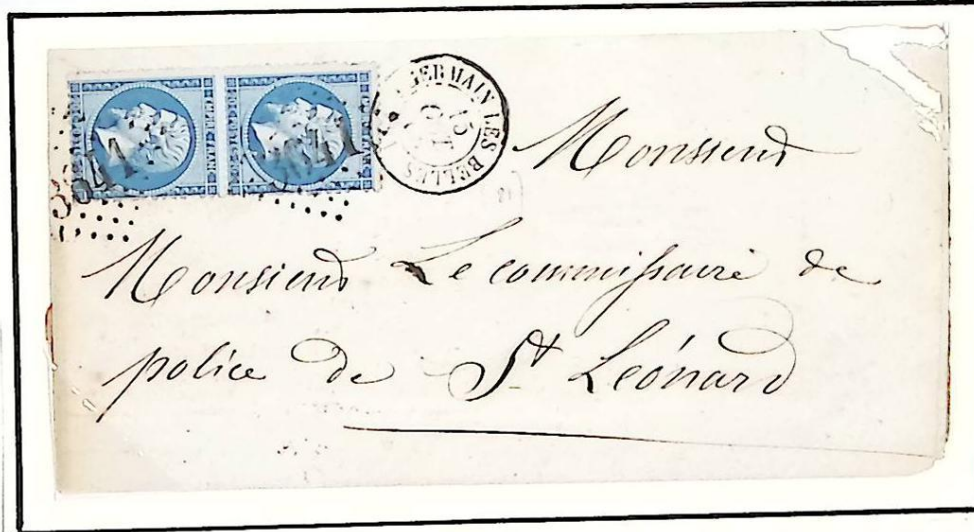 3641
3641
GERMAIN LES BELLES
15
Monsieur
Monsieur Le commissaire de
police de St Léonard